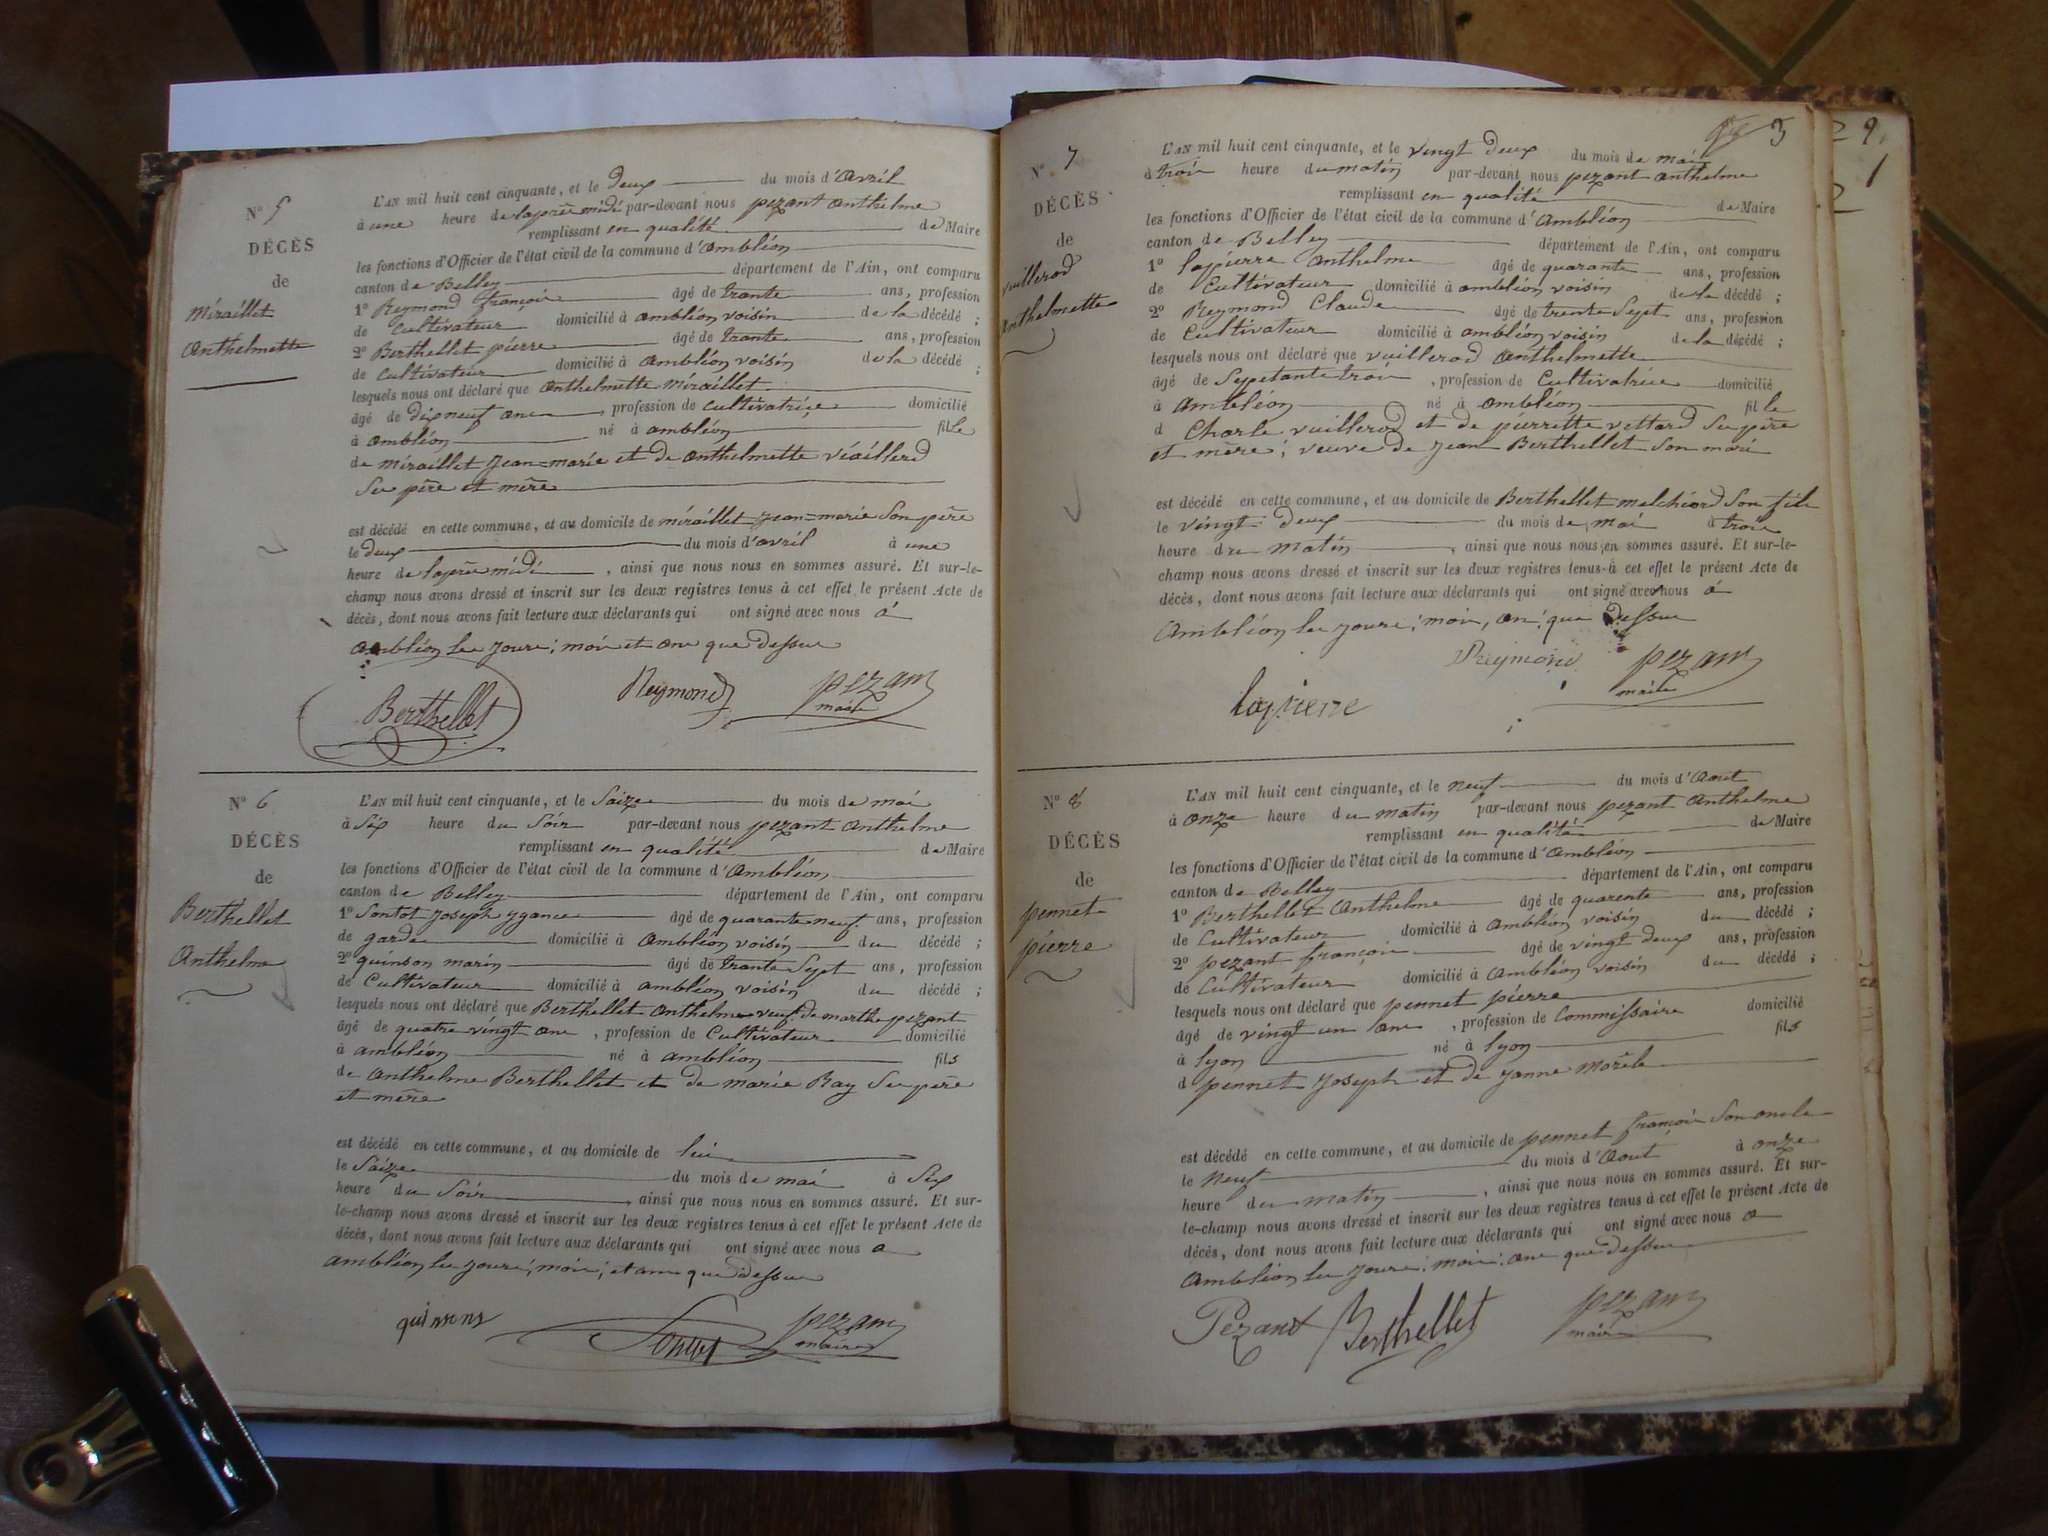 N° 5
DÉCÈS
de
Miraillet
Anthelmette
L'AN mil huit cent cinquante, et le deux du mois d'avril
à une heure de laprès midi par-devant nous pezant anthelme
remplissant en qualité de Maire
les fonctions d'Officier de l'état civil de la commune d'Ambléon
canton de Belley département de l'Ain, ont comparu
1° Reymond françois âgé de trante ans, profession
de Cultivateur domicilié à ambléon voisin de la décédé ;
2° Berthellet pierre âgé de trante ans, profession
de Cultivateur domicilié à Ambléon voisin de la décédé ;
lesquels nous ont déclaré que anthelmette miraillet
âgé de dix neuf ans, profession de cultivatrice domicilié
à ambléon né à ambléon fille
de miraillet jean=marie et de anthelmette viaillerd
Ses père et mère
est décédé en cette commune, et au domicile de miraillet jean=marie Son père
le deux du mois d'avril à une
heure de laprès midi, ainsi que nous nous en sommes assuré. Et sur-le-
champ nous avons dressé et inscrit sur les deux registres tenus à cet effet le présent Acte de
décès, dont nous avons fait lecture aux déclarants qui ont signé avec nous à
ambléon les jours ; mois et ans que dessus
Berthellet Reymond pezant
maire
N° 6
DÉCÈS
de
Berthellet
Anthelme
L'AN mil huit cent cinquante, et le Saize du mois de mai
à Six heure du Soir par-devant nous pezant anthelme
remplissant en qualité de Maire
les fonctions d'Officier de l'état civil de la commune d'Ambléon
canton de Belley département de l'Ain, ont comparu
1° Sontot joseph ygance âgé de quarante neuf ans, profession
de garde domicilié à Ambléon voisin du décédé ;
2° quinson marin âgé de trante Sept ans, profession
de Cultivateur domicilié à ambléon voisin du décédé ;
lesquels nous ont déclaré que Berthellet Anthelme veuf de marthe pezant
âgé de quatre vingt ans, profession de Cultivateur domicilié
à ambléon né à ambléon fils
de Anthelme Berthellet et de marie Ray Ses père
et mère
est décédé en cette commune, et au domicile de lui
le Saize du mois de mai à Six
heure du Soir, ainsi que nous nous en sommes assuré. Et sur-
le-champ nous avons dressé et inscrit sur les deux registres tenus à cet effet le présent Acte de
décès, dont nous avons fait lecture aux déclarants qui ont signé avec nous a
ambléon les jours ; mois ; et ans que dessus
quinsons pezant
maire
3
N° 7
DÉCÈS
de
vuillerod
Anthelmette
L'AN mil huit cent cinquante, et le vingt deux du mois de mai
à trois heure du matin par-devant nous pezant anthelme
remplissant en qualité de Maire
les fonctions d'Officier de l'état civil de la commune d'Ambléon
canton de Belley département de l'Ain, ont comparu
1° lapierre Anthelme âgé de quarante ans, profession
de Cultivateur domicilié à ambléon voisin de la décédé ;
2° Reymond Claude âgé de trente Sept ans, profession
de Cultivateur domicilié à ambléon voisin de la décédé ;
lesquels nous ont déclaré que vuillerod Anthelmette
âgé de Seppetante trois, profession de Cultivatrice domicilié
à Ambléon né à ambléon fille
d Charle vuillerod et de pierrette vettard Ses père
et mère ; veuve de jean Berthellet Son mari
est décédé en cette commune, et au domicile de Berthellet melchiord Son fils
le vingt deux du mois de mai à trois
heure du matin, ainsi que nous nous en sommes assuré. Et sur-le-
champ nous avons dressé et inscrit sur les deux registres tenus à cet effet le présent Acte de
décès, dont nous avons fait lecture aux déclarants qui ont signé avec nous à
Ambléon les jours ; mois, an ; que dessus
lapierre Reymond pezant
maire
N° 8
DÉCÈS
de
pennet
pierre
L'AN mil huit cent cinquante, et le neuf du mois d'Aout
à onze heure du matin par-devant nous pezant Anthelme
remplissant en qualité de Maire
les fonctions d'Officier de l'état civil de la commune d'Ambléon
canton de Belley département de l'Ain, ont comparu
1° Berthellet Anthelme âgé de quarente ans, profession
de Cultivateur domicilié à Ambléon voisin du décédé ;
2° pezant françois âgé de vingt deux ans, profession
de Cultivateur domicilié à Ambléon voisin du décédé ;
lesquels nous ont déclaré que pennet pierre
âgé de vingt un ans, profession de Commissaire domicilié
à lyon né à lyon fils
d pennet joseph et de janne morèle
est décédé en cette commune, et au domicile de pennet françois Son oncle
le neuf du mois d'Aout à onze
heure du matin, ainsi que nous nous en sommes assuré. Et sur-
le-champ nous avons dressé et inscrit sur les deux registres tenus à cet effet le présent Acte de
décès, dont nous avons fait lecture aux déclarants qui ont signé avec nous a
Ambléon les jours ; mois ; ans que dessus
Pezant Berthellet pezant
maire